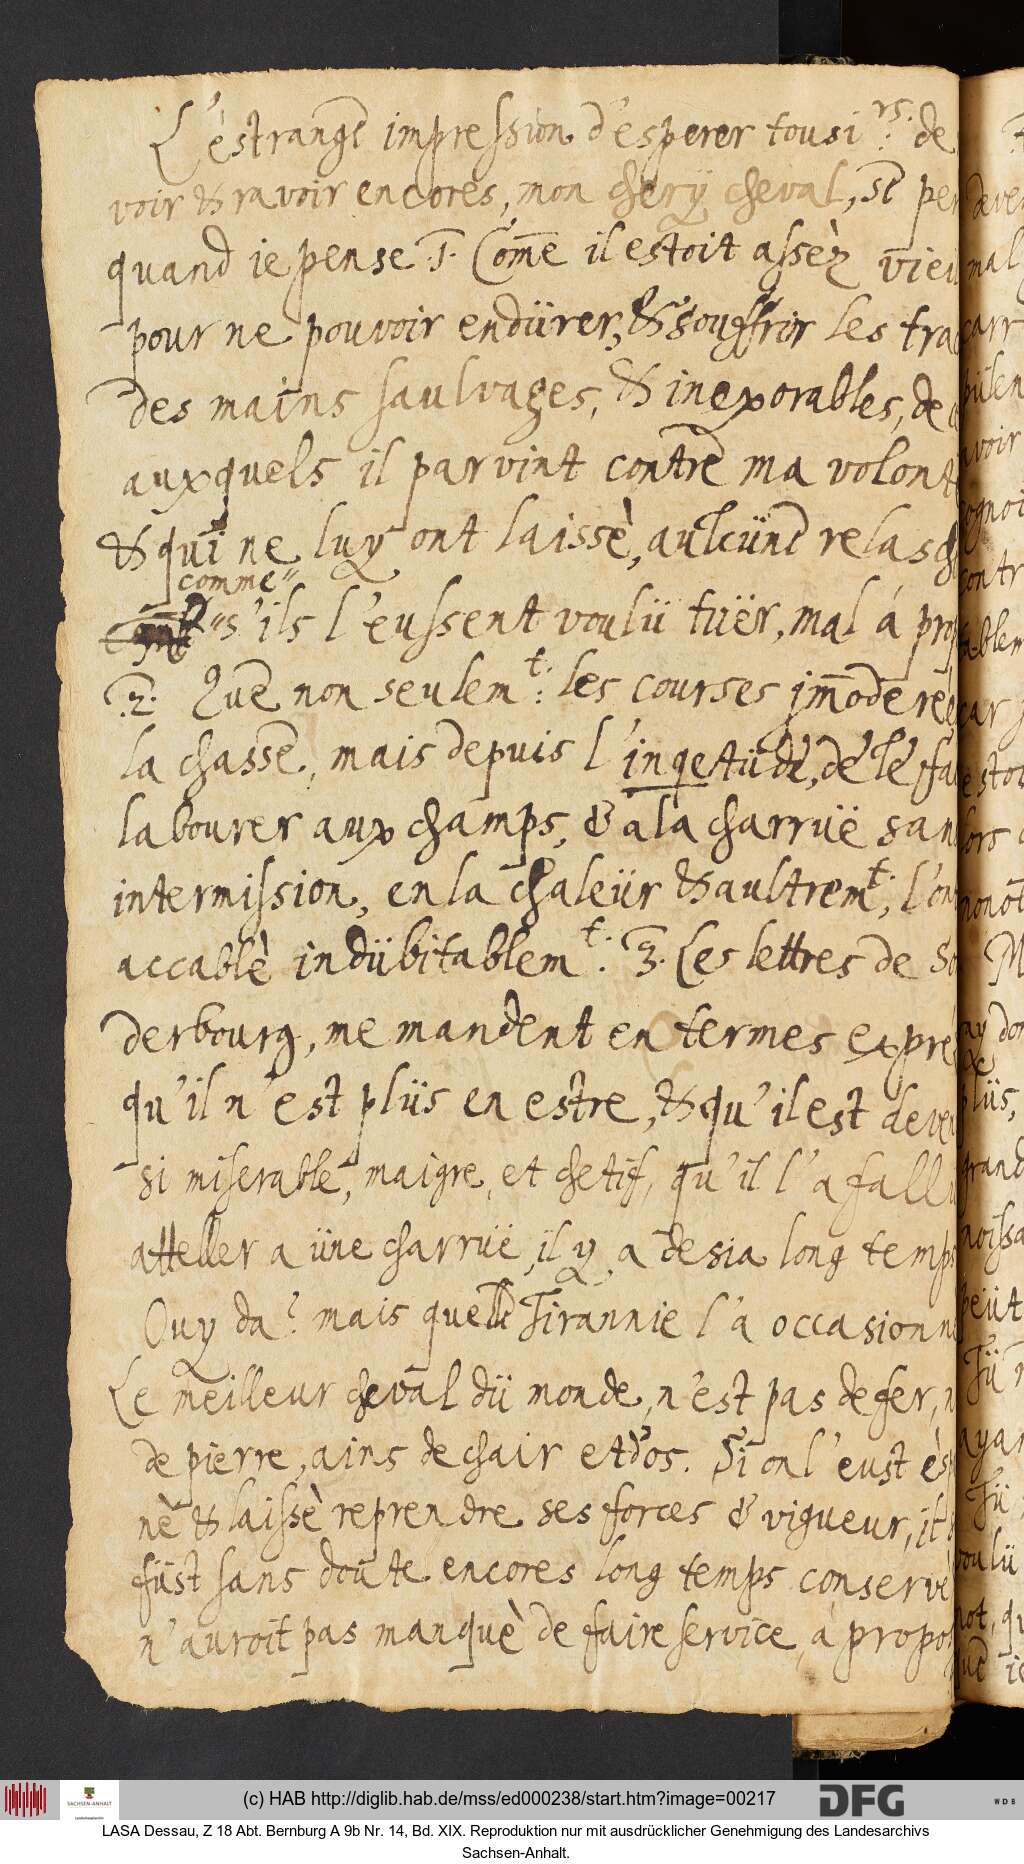 L'estrange impression d'esperer tousi rs: de
voir & ravoir encores, mon chery cheval, se per
quand ie pense .1. Come il estoit assèz vieu
pour ne pouvoir endürer, & souffrir les tra
des mains saulvages, & inexorables, de
auxquels il parvint contre ma volont
& qui ne luy ont laissè, aulcüne relasch
comme"
"s'ils l'eussent voulü tuër, mal á prop
.2. Que non seulem t: les courses imoderé
la chasse, mais depuis l'inqetüde, de le fai
labourer aux champs, & a la charrüe san
intermission, en la chaleür & aultrem t:, l'on
accablè indübitablem t: 3. Les lettres de So
derbourg, me mandent en termes expres
qu'il n'est plüs en estre, & qu'il est deven
si miserable, maigre, et chetif, qu'il l'a fallu
atteller a üne charrüe, il y a desia long temps
Ouy da? mais quelle Tirannie l'a occasionné
Le meilleur cheval dü monde, n'est pas de fer, n
de pierre, ains de chair et d'os. Si on l'eust esp
nè & laissè reprendre ses forces & vigueur, il
füst sans doute encores long temps conservè
n'auroit pas manquè de faire service, á propos
(c) HAB http://diglib.hab.de/mss/ed000238/start.htm?image=00217
SACHSEN-ANHALT
DFG
WDB
LASA Dessau, Z 18 Abt. Bernburg A 9b Nr. 14, Bd. XIX. Reproduktion nur mit ausdrücklicher Genehmigung des Landesarchivs
Sachsen-Anhalt.